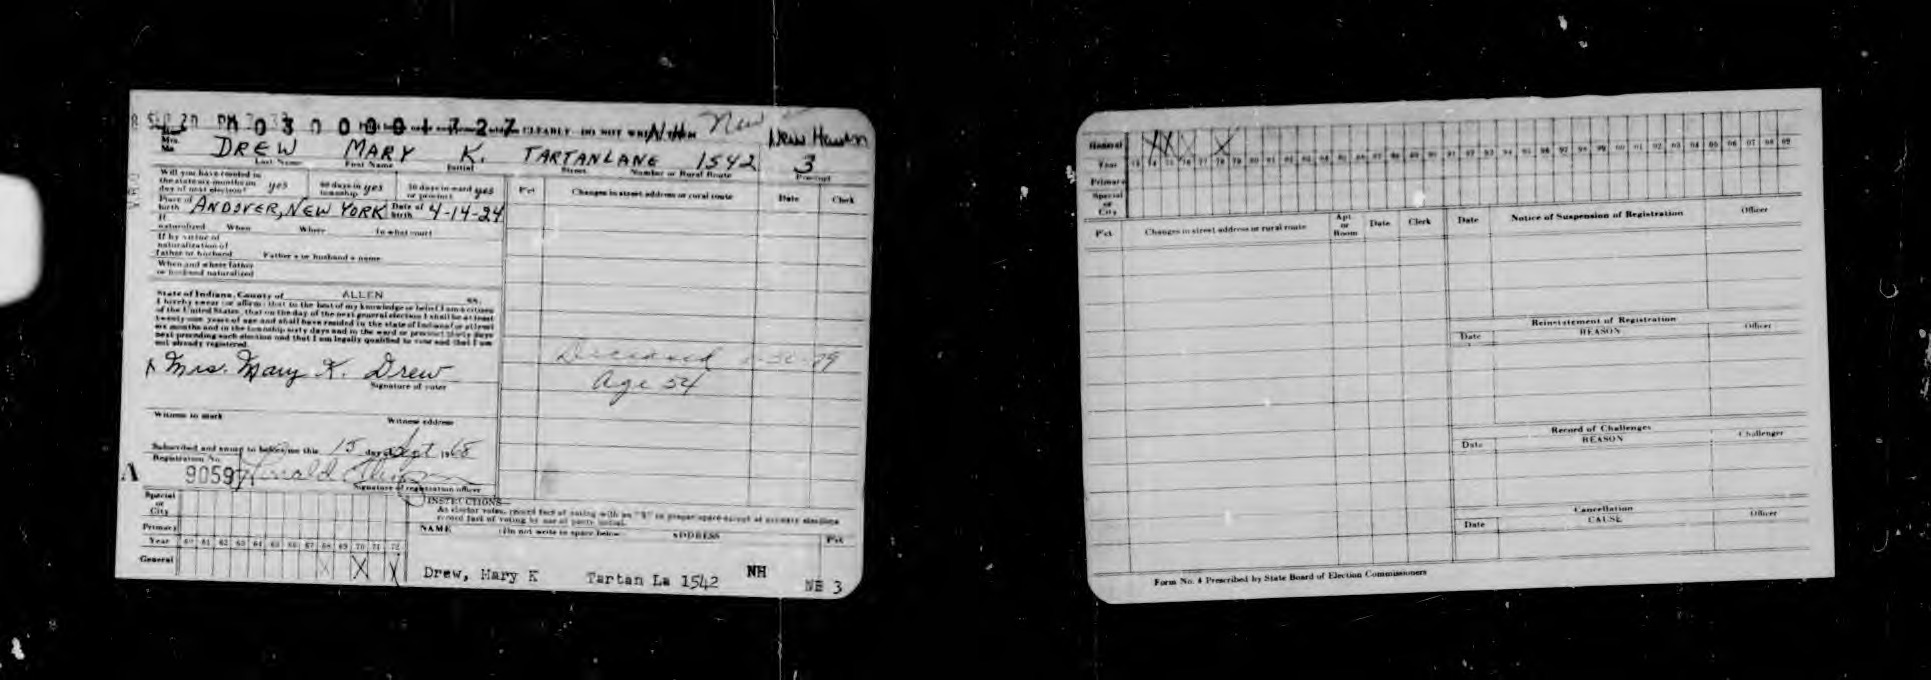 0300001727 CLEARLY DO NOT WRITE N.H. New New Haven
Mrs. DREW MARY K. TARTAN LANE 1542 3
Ms. Last Name First Name Initial Street Number or Rural Route Precinct
Will you have resided in
the state six months on
day of next election? yes 60 days in township yes 30 days in ward or precinct yes
Pct Changes in street address or rural route Date Clerk
Place of birth ANDOVER, NEW YORK Date of birth 4-14-24
If
naturalized When Where In what court
If by virtue of
naturalization of
father or husband Father's or husband's name
When and where father
or husband naturalized
State of Indiana, County of ALLEN ss:
I hereby swear (or affirm) that to the best of my knowledge or belief I am a citizen
of the United States, that on the day of the next general election I shall be at least
twenty-one years of age and shall have resided in the state of Indiana for at least
six months and in the township sixty days and in the ward or precinct thirty days
next preceding such election and that I am legally qualified to vote and that I am
not already registered.
Deceased 79
Age 54
X Mrs. Mary K. Drew
Signature of voter
Witness to mark Witness address
Subscribed and sworn to before me this 15 day of Sept 1968
Registration No.
A 9059
Signature of registration officer
Special
or
City
Primary
Year 60 61 62 63 64 65 66 67 68 69 70 71 72
General X X X
INSTRUCTIONS—
As elector votes, record fact of voting with an "X" in proper space except at primary elections
record fact of voting by use of party initial.
NAME (Do not write in space below) ADDRESS Pct
Drew, Mary K Tartan La 1542 NH NH 3
General X X X X
Year 73 74 75 76 77 78 79 80 81 82 83 84 85 86 87 88 89 90 91 92 93 94 95 96 97 98 99 00 01 02 03 04 05 06 07 08 09
Primary
Special
or
City
Pct Changes in street address or rural route Apt. or Room Date Clerk
Date Notice of Suspension of Registration Officer
Reinstatement of Registration
Date REASON Officer
Record of Challenges
Date REASON Challenger
Cancellation
Date CAUSE Officer
Form No. 4 Prescribed by State Board of Election Commissioners